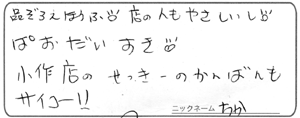 品ぞろえほうふ 店の人もやさしいし
ぱおだいすき
小作店のせっきーのかんばんも
サイコー!!
ニックネーム ちか